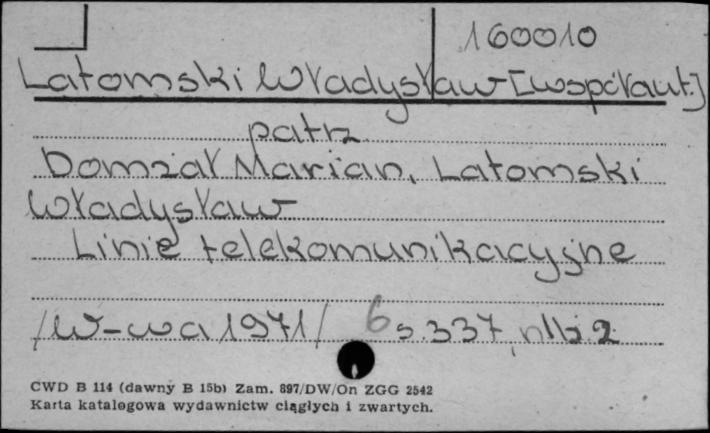 160010
Latomski Władysław [współaut.]
patrz
Domział Marian, Latomski
Władysław
Linie telekomunikacyjne
/W-wa 1971/ 6 s. 337, nlb. 2
CWD B 114 (dawny B 15b) Zam. 897/DW/On ZGG 2542
Karta katalogowa wydawnictw ciągłych i zwartych.